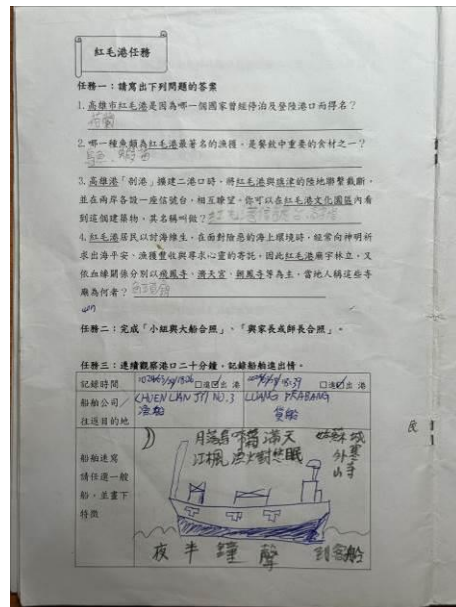 紅毛港任務
任務一：請寫出下列問題的答案
1.高雄市紅毛港是因為哪一個國家曾經停泊及登陸港口而得名？
荷蘭
2.哪一種魚類為紅毛港最著名的漁獲，是餐飲中重要的食材之一？
3.高雄港「剖港」擴建二港口時，將紅毛港與旗津的陸地聯繫截斷，
並在兩岸各設一座信號台，相互瞭望，你可以在紅毛港文化園區內看
到這個建築物，其名稱叫做？
4.紅毛港居民以討海維生，在面對險惡的海上環境時，經常向神明祈
求出海平安、漁獲豐收與尋求心靈的寄託，因此紅毛港廟宇林立，又
依血緣關係分別以飛鳳寺、濟天宮、朝鳳寺等為主，當地人稱這些寺
廟為何者？
任務二：完成「小組與大船合照」、「與家長或師長合照」。
任務三：連續觀察港口二十分鐘，記錄船舶進出情。
記錄時間 □進☑出 港 □進☑出 港
船舶公司／ CHUEN LAN JYI NO.3 LUANG PRABANG
往返目的地 漁船 貨船
船舶速寫
請任選一般
船，並畫下
特徵
月落烏啼霜滿天
江楓漁火對愁眠
姑蘇城
外寒
山寺
夜半鐘聲到客船
民